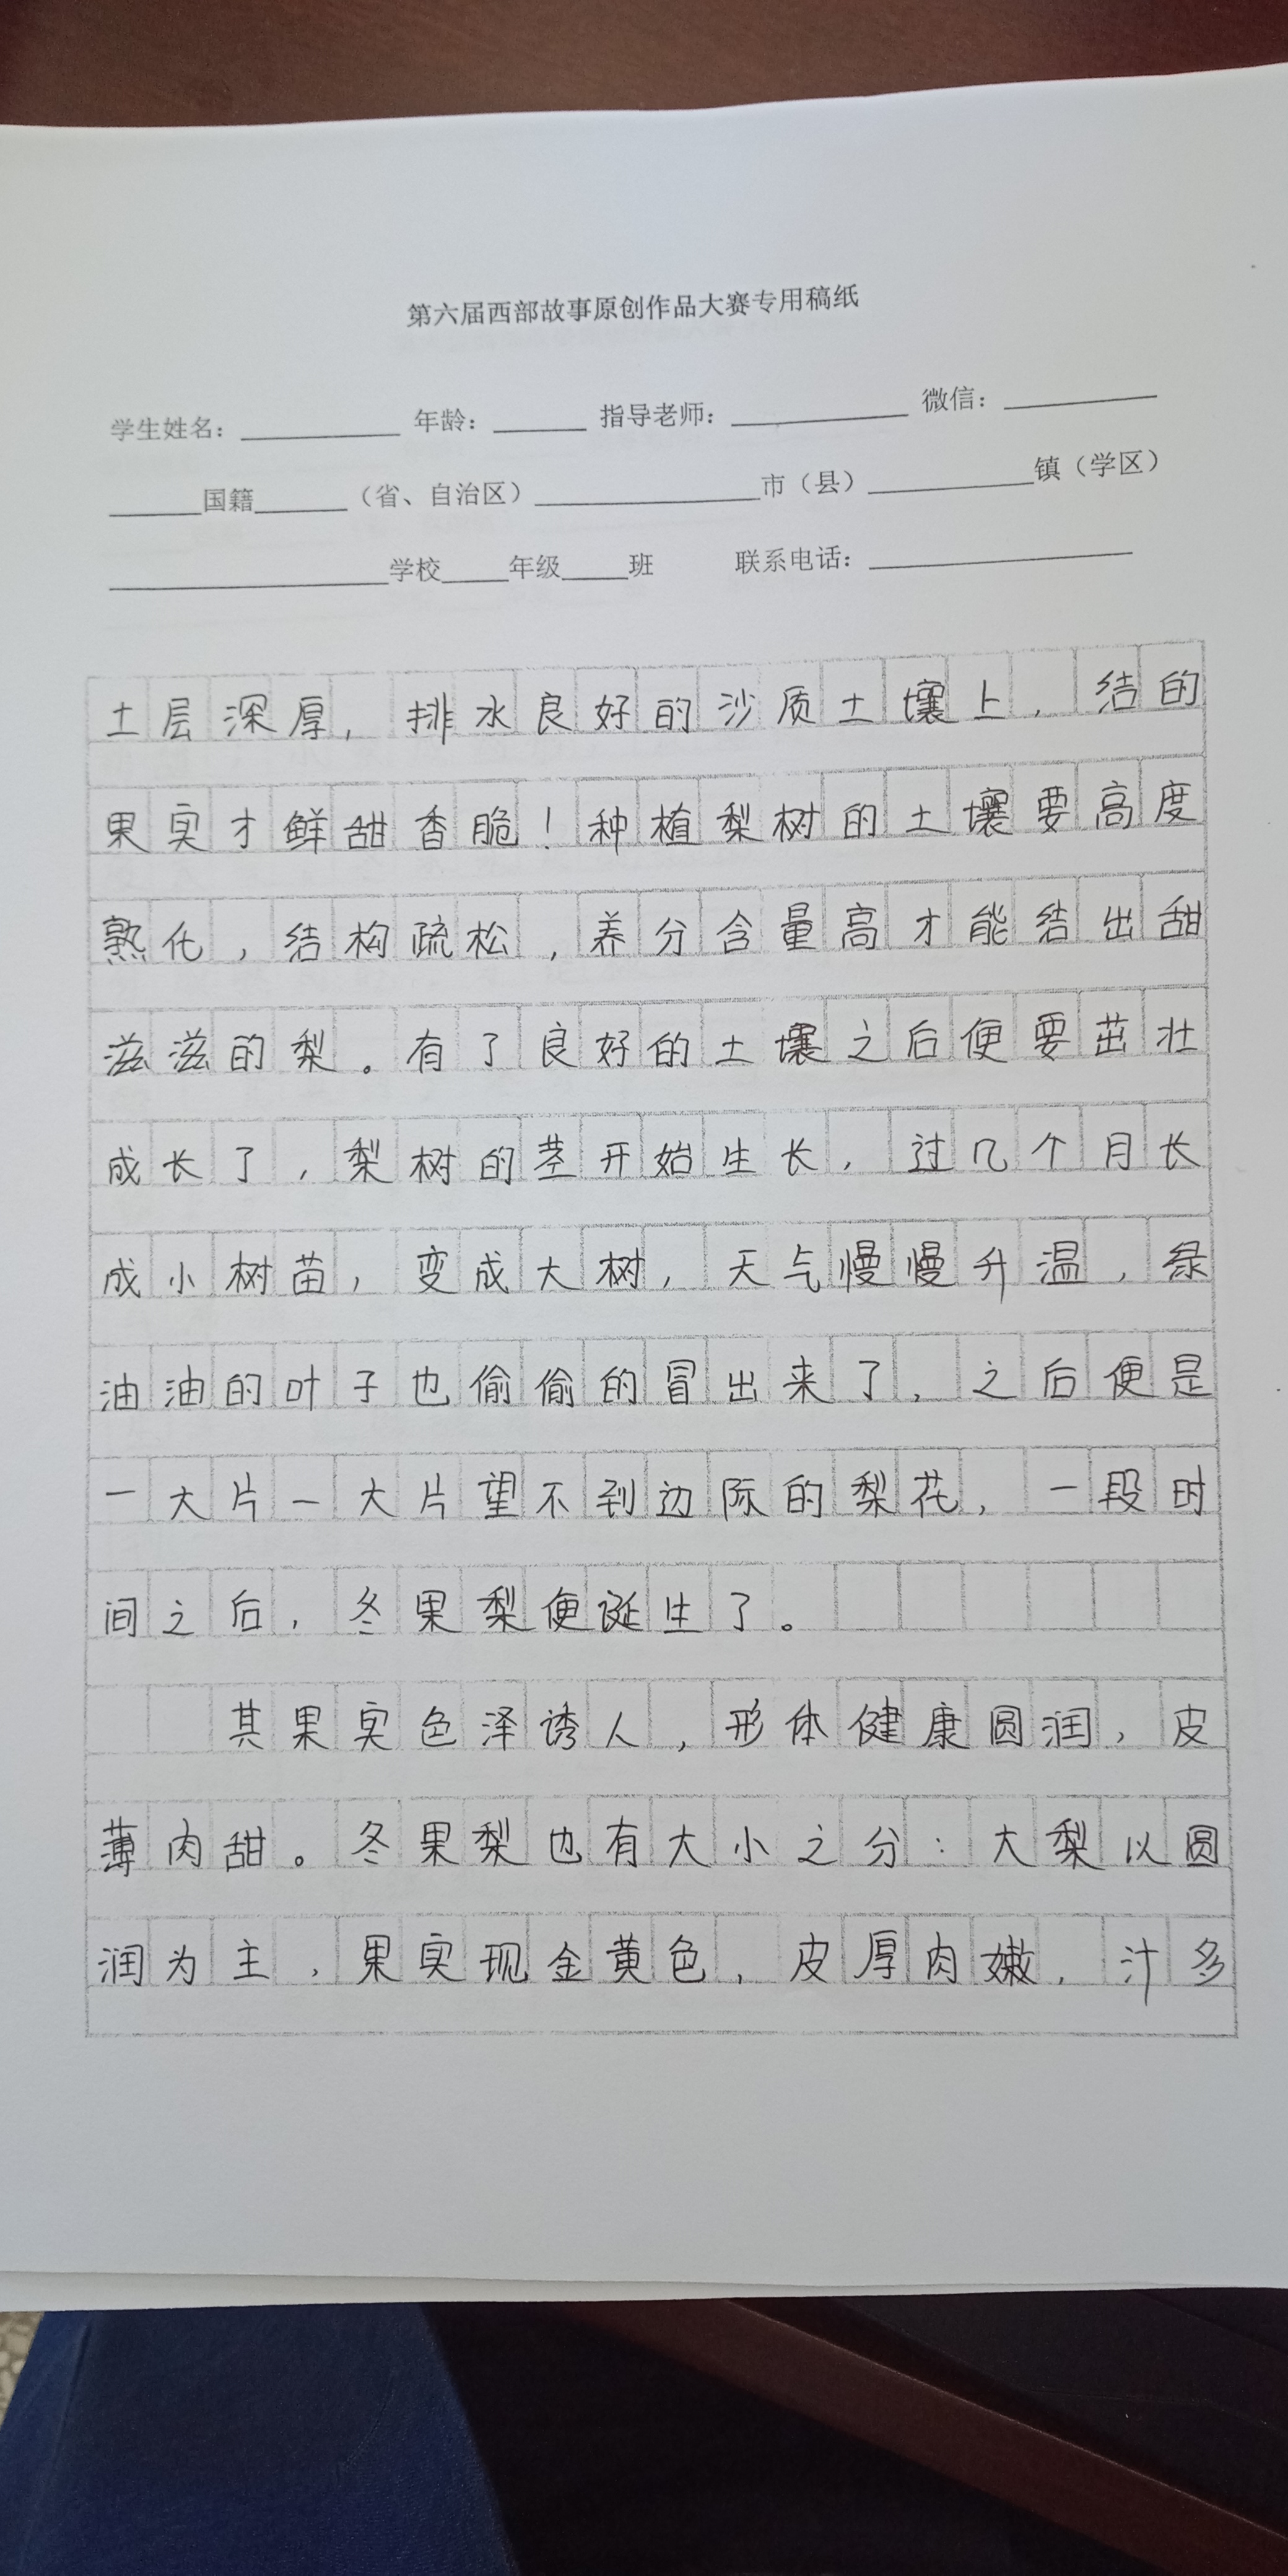 第六届西部故事原创作品大赛专用稿纸
学生姓名：________ 年龄：_____ 指导老师：_________ 微信：________
_____国籍_____（省、自治区）____________市（县）_________镇（学区）
_______________学校____年级____班 联系电话：______________
土层深厚，排水良好的沙质土壤上，结的
果实才鲜甜香脆！种植梨树的土壤要高度
熟化，结构疏松，养分含量高才能结出甜
滋滋的梨。有了良好的土壤之后便要茁壮
成长了，梨树的茎开始生长，过几个月长
成小树苗，变成大树，天气慢慢升温，绿
油油的叶子也偷偷的冒出来了，之后便是
一大片一大片望不到边际的梨花，一段时
间之后，冬果梨便诞生了。
其果实色泽诱人，形体健康圆润，皮
薄肉甜。冬果梨也有大小之分：大梨以圆
润为主，果实现金黄色，皮厚肉嫩，汁多